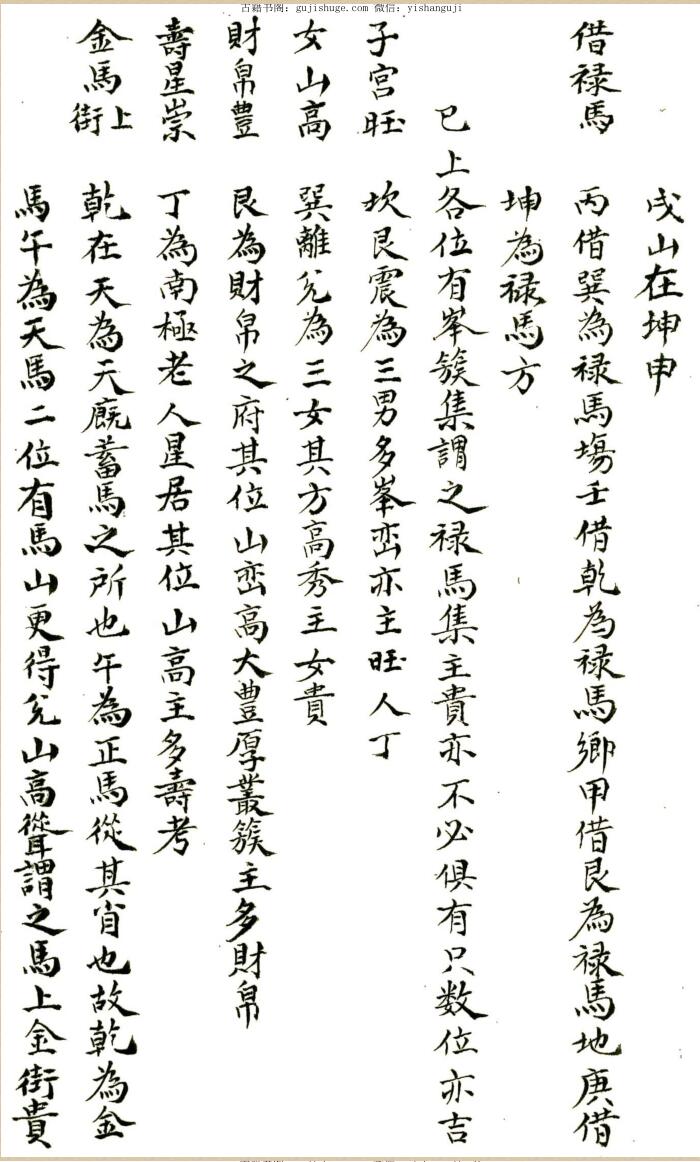 古籍书阁: gujishuge.com 微信: yishanguji
戌山在坤申
借禄馬 丙借巽為禄馬塲壬借乾為禄馬鄉甲借艮為禄馬地庚借
坤為禄馬方
已上各位有峯簇集謂之禄馬集主貴亦不必俱有只数位亦吉
子宮旺 坎艮震為三男多峯巒亦主旺人丁
女山高 巽離兌為三女其方高秀主女貴
財帛豊 艮為財帛之府其位山巒高大豊厚叢簇主多財帛
壽星崇 丁為南極老人星居其位山高主多壽考
金馬上街 乾在天為天廐蓄馬之所也午為正馬從其肖也故乾為金
馬午為天馬二位有馬山更得兌山高聳謂之馬上金街貴